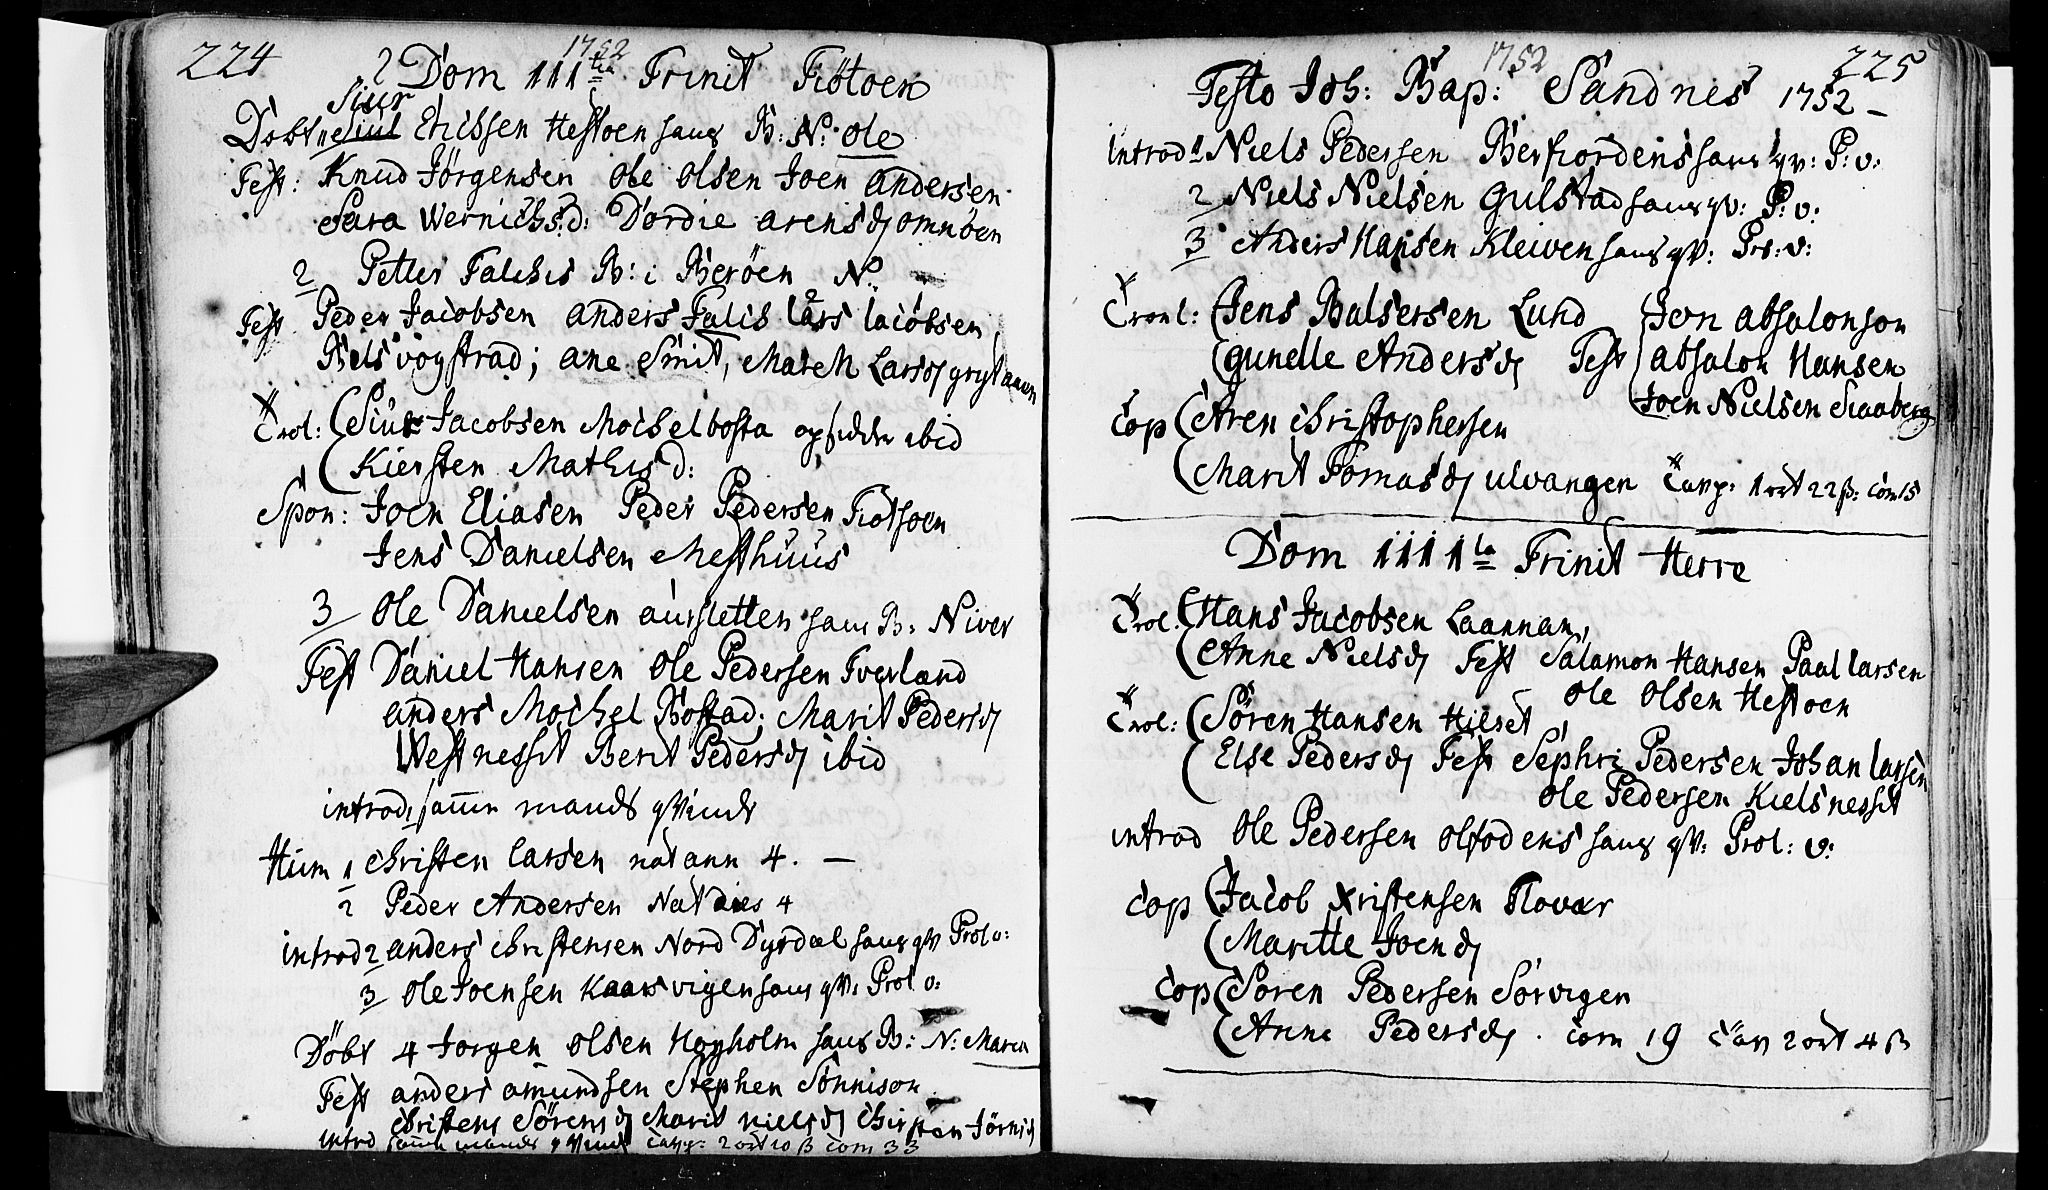 224
1752
2 Dom IIItia Trinit Tiøtoen
Siur
Døbt Ericssen Hestoen hans B: N: Ole
Test: Knud Jørgensen Ole Olsen Joen Andersen
Sara Wernichs d: Dordie Arens d omnöen
2 Petter Falchis B: i Beröen N:
Test Peder Jacobsen anders Falis lars Iacobsen
Niels vogstrad; ane Smit, Mareth Lars d
Trol: (Siur Jacobsen Mochelbosta opsidder ibid
(Kiersten Mathis d:
Spon: Joen Eliasen Peder Pedersen Tiotsoen
Jens Danielsen Mesthuus
3 Ole Danielsen aursletten hans B: Niver
Test Daniel Hansen Ole Pedersen Tverland
anders Mochel Bostad; Marit Peders d
Westnessit Berit Peders d ibid
introd: samme mands qvinde
Hum 1 Christen Larsen nat ann 4. —
2 Peder Andersen Nat dies 4
introd 2 anders Christensen Nord Dyrdal hans qv Prol v:
3 Ole Joensen Kaarsvigen hans qv: Prol v:
Döbt 4 Jorgen Olsen Høyholm hans B: N: Maren
Test anders amundsen Stephen Sonnison
Christens Sörens d Marit niels d
introd samme mands qvinde Tavp: 2 ort 10 ß com 33
225
1752
Festo Joh: Bap: Sandnis 1752 –
Introd 1 Niels Pedersen Berfiordens hans qv: P: v:
2 Niels Nielsen Gulstad hans qv: P: v:
3 Anders Hansen Kleiven hans qv: Pr: v:
Trol: (Jens Balsersen Lund (Jon absalonson
(Gunelle Anders d Test (absalon Hansen
(Joen Nielsen Siaaberg
Cop (Aren Christophersen
(Marit Tomas d ulvangen Tavp: 1 ort 22 ß: com 15
Dom IIIIta Trinit Herre
Trol: (Hans Jacobsen Laannan,
(Anne Niels d Test Salamon Hansen Paal Larsen
Ole Olsen Hestoen
Trol: (Sören Hansen Hilset
(Else Peders d Test Sephri Pedersen Johan Larsen
Ole Pedersen Kielsnessit
introd Ole Pedersen olfodens hans qv: Prol: v:
Cop (Jacob Xristensen Flovær
(Maritte Joen d
Cop (Soren Pedersen Sorvigen
(Anne Peders d . com 19 Tavp 2 ort 4 ß